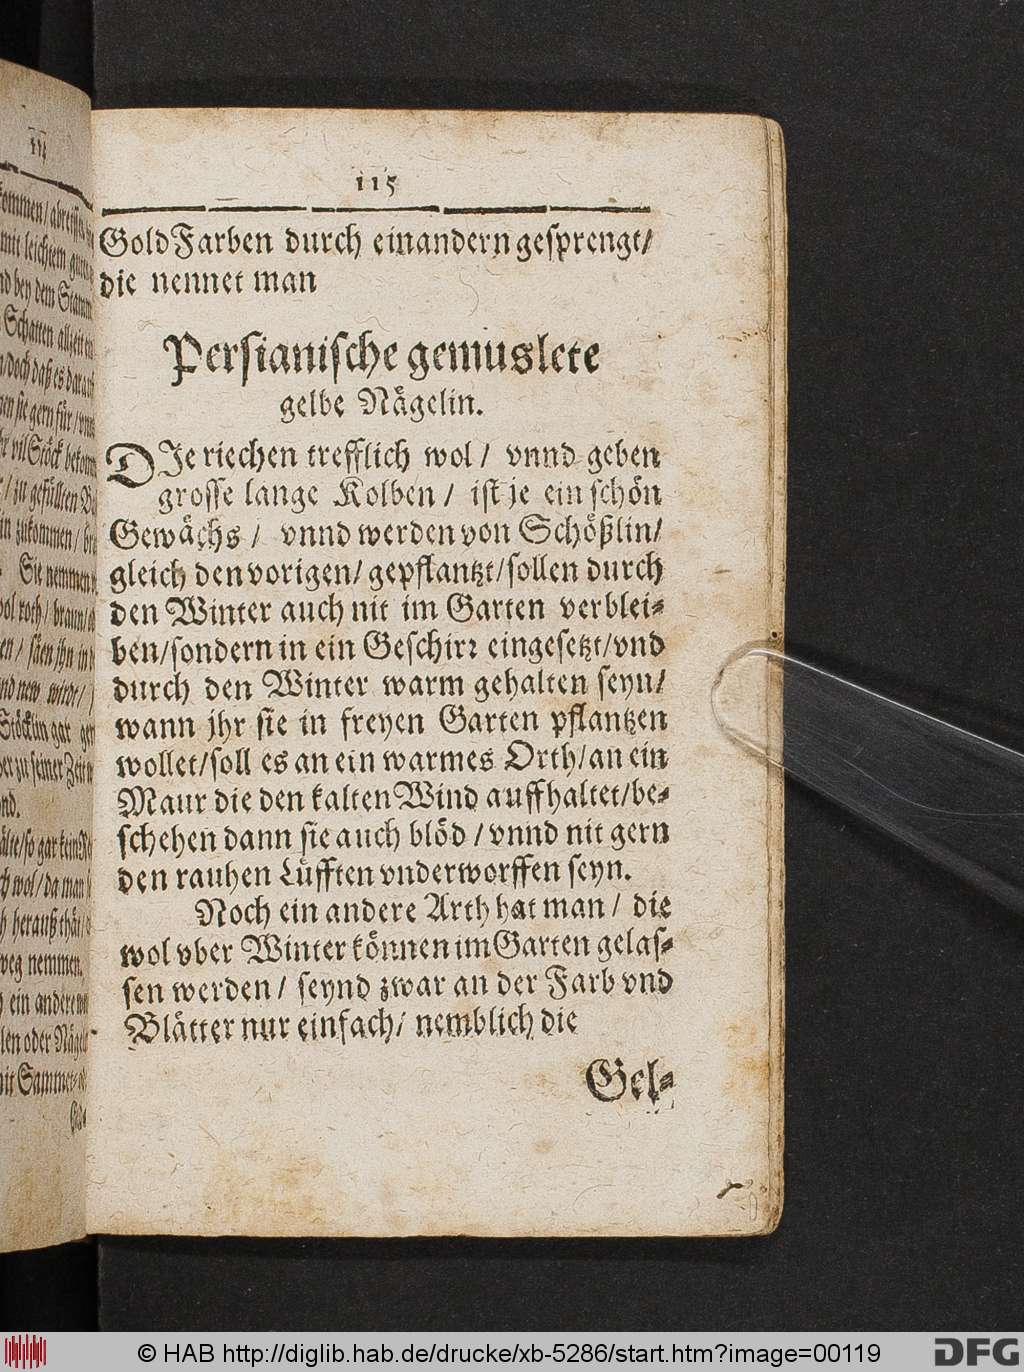 115
Gold Farben durch einandern gesprengt/
die nennet man
Persianische gemuslete
gelbe Nägelin.
DIe riechen trefflich wol / vnnd geben
grosse lange Kolben / ist je ein schön
Gewächs / vnnd werden von Schößlin/
gleich den vorigen/ gepflantzt/ sollen durch
den Winter auch nit im Garten verblei-
ben/ sondern in ein Geschirr eingesetzt/ vnd
durch den Winter warm gehalten seyn/
wann jhr sie in freyen Garten pflantzen
wollet/ soll es an ein warmes Orth/ an ein
Maur die den kalten Wind auffhaltet/ be-
schehen dann sie auch blöd / vnnd nit gern
den rauhen Lüfften vnderworffen seyn.
Noch ein andere Arth hat man / die
wol vber Winter können im Garten gelas-
sen werden / seynd zwar an der Farb vnd
Blätter nur einfach/ nemblich die
Gel-
© HAB http://diglib.hab.de/drucke/xb-5286/start.htm?image=00119
DFG